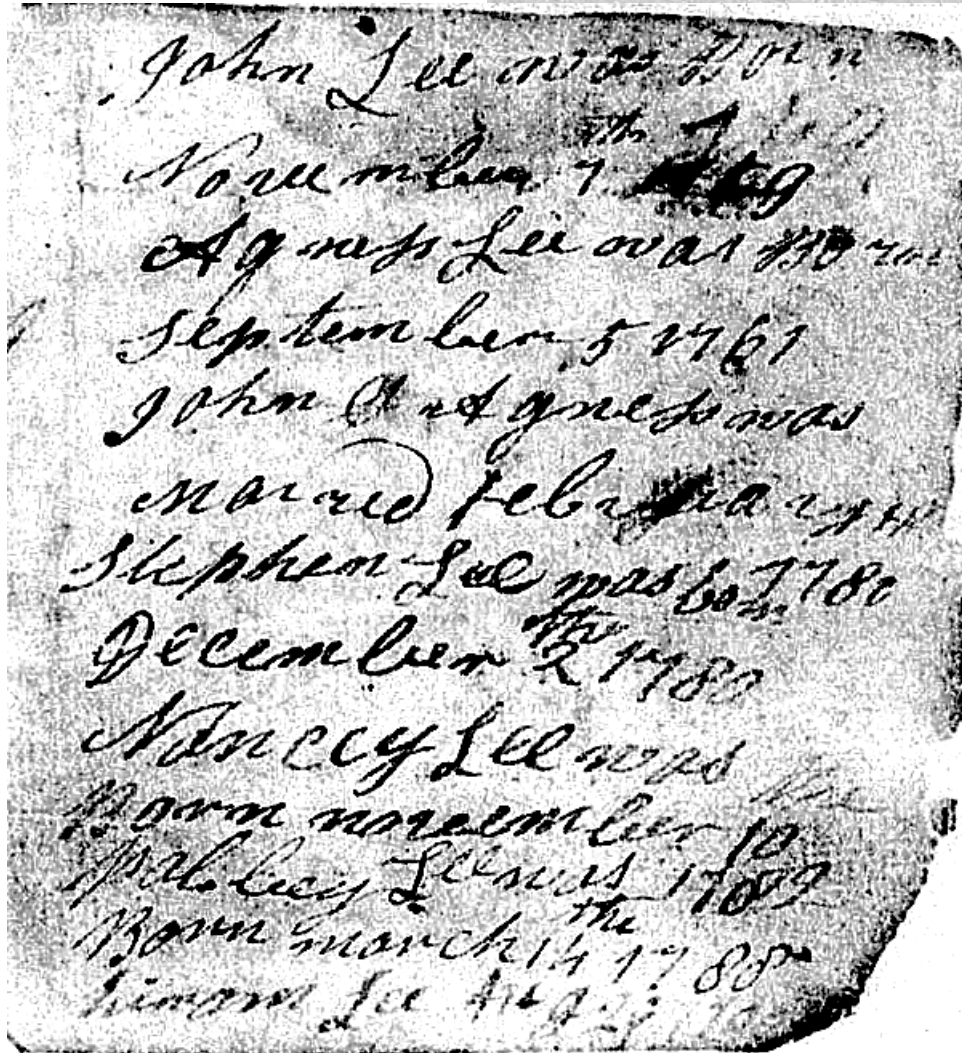 John Lee was Born
November 7th
Agness Lee was Born
September 5 1761
John & Agness was
Marred February
Stephen Lee was born 1780
December 2 1780
Nanccy Lee was
Born novembr 10
Lee was 1782
Born march 14th 1788
hiram Lee Aug